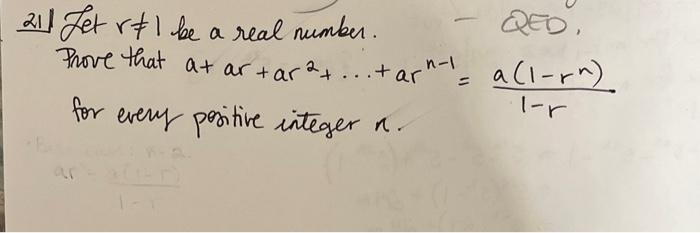 21) Let r≠1 be a real number. — QED.
Prove that a + ar + ar² + ... + arⁿ⁻¹ = a(1-rⁿ)
1-r
for every positive integer n.